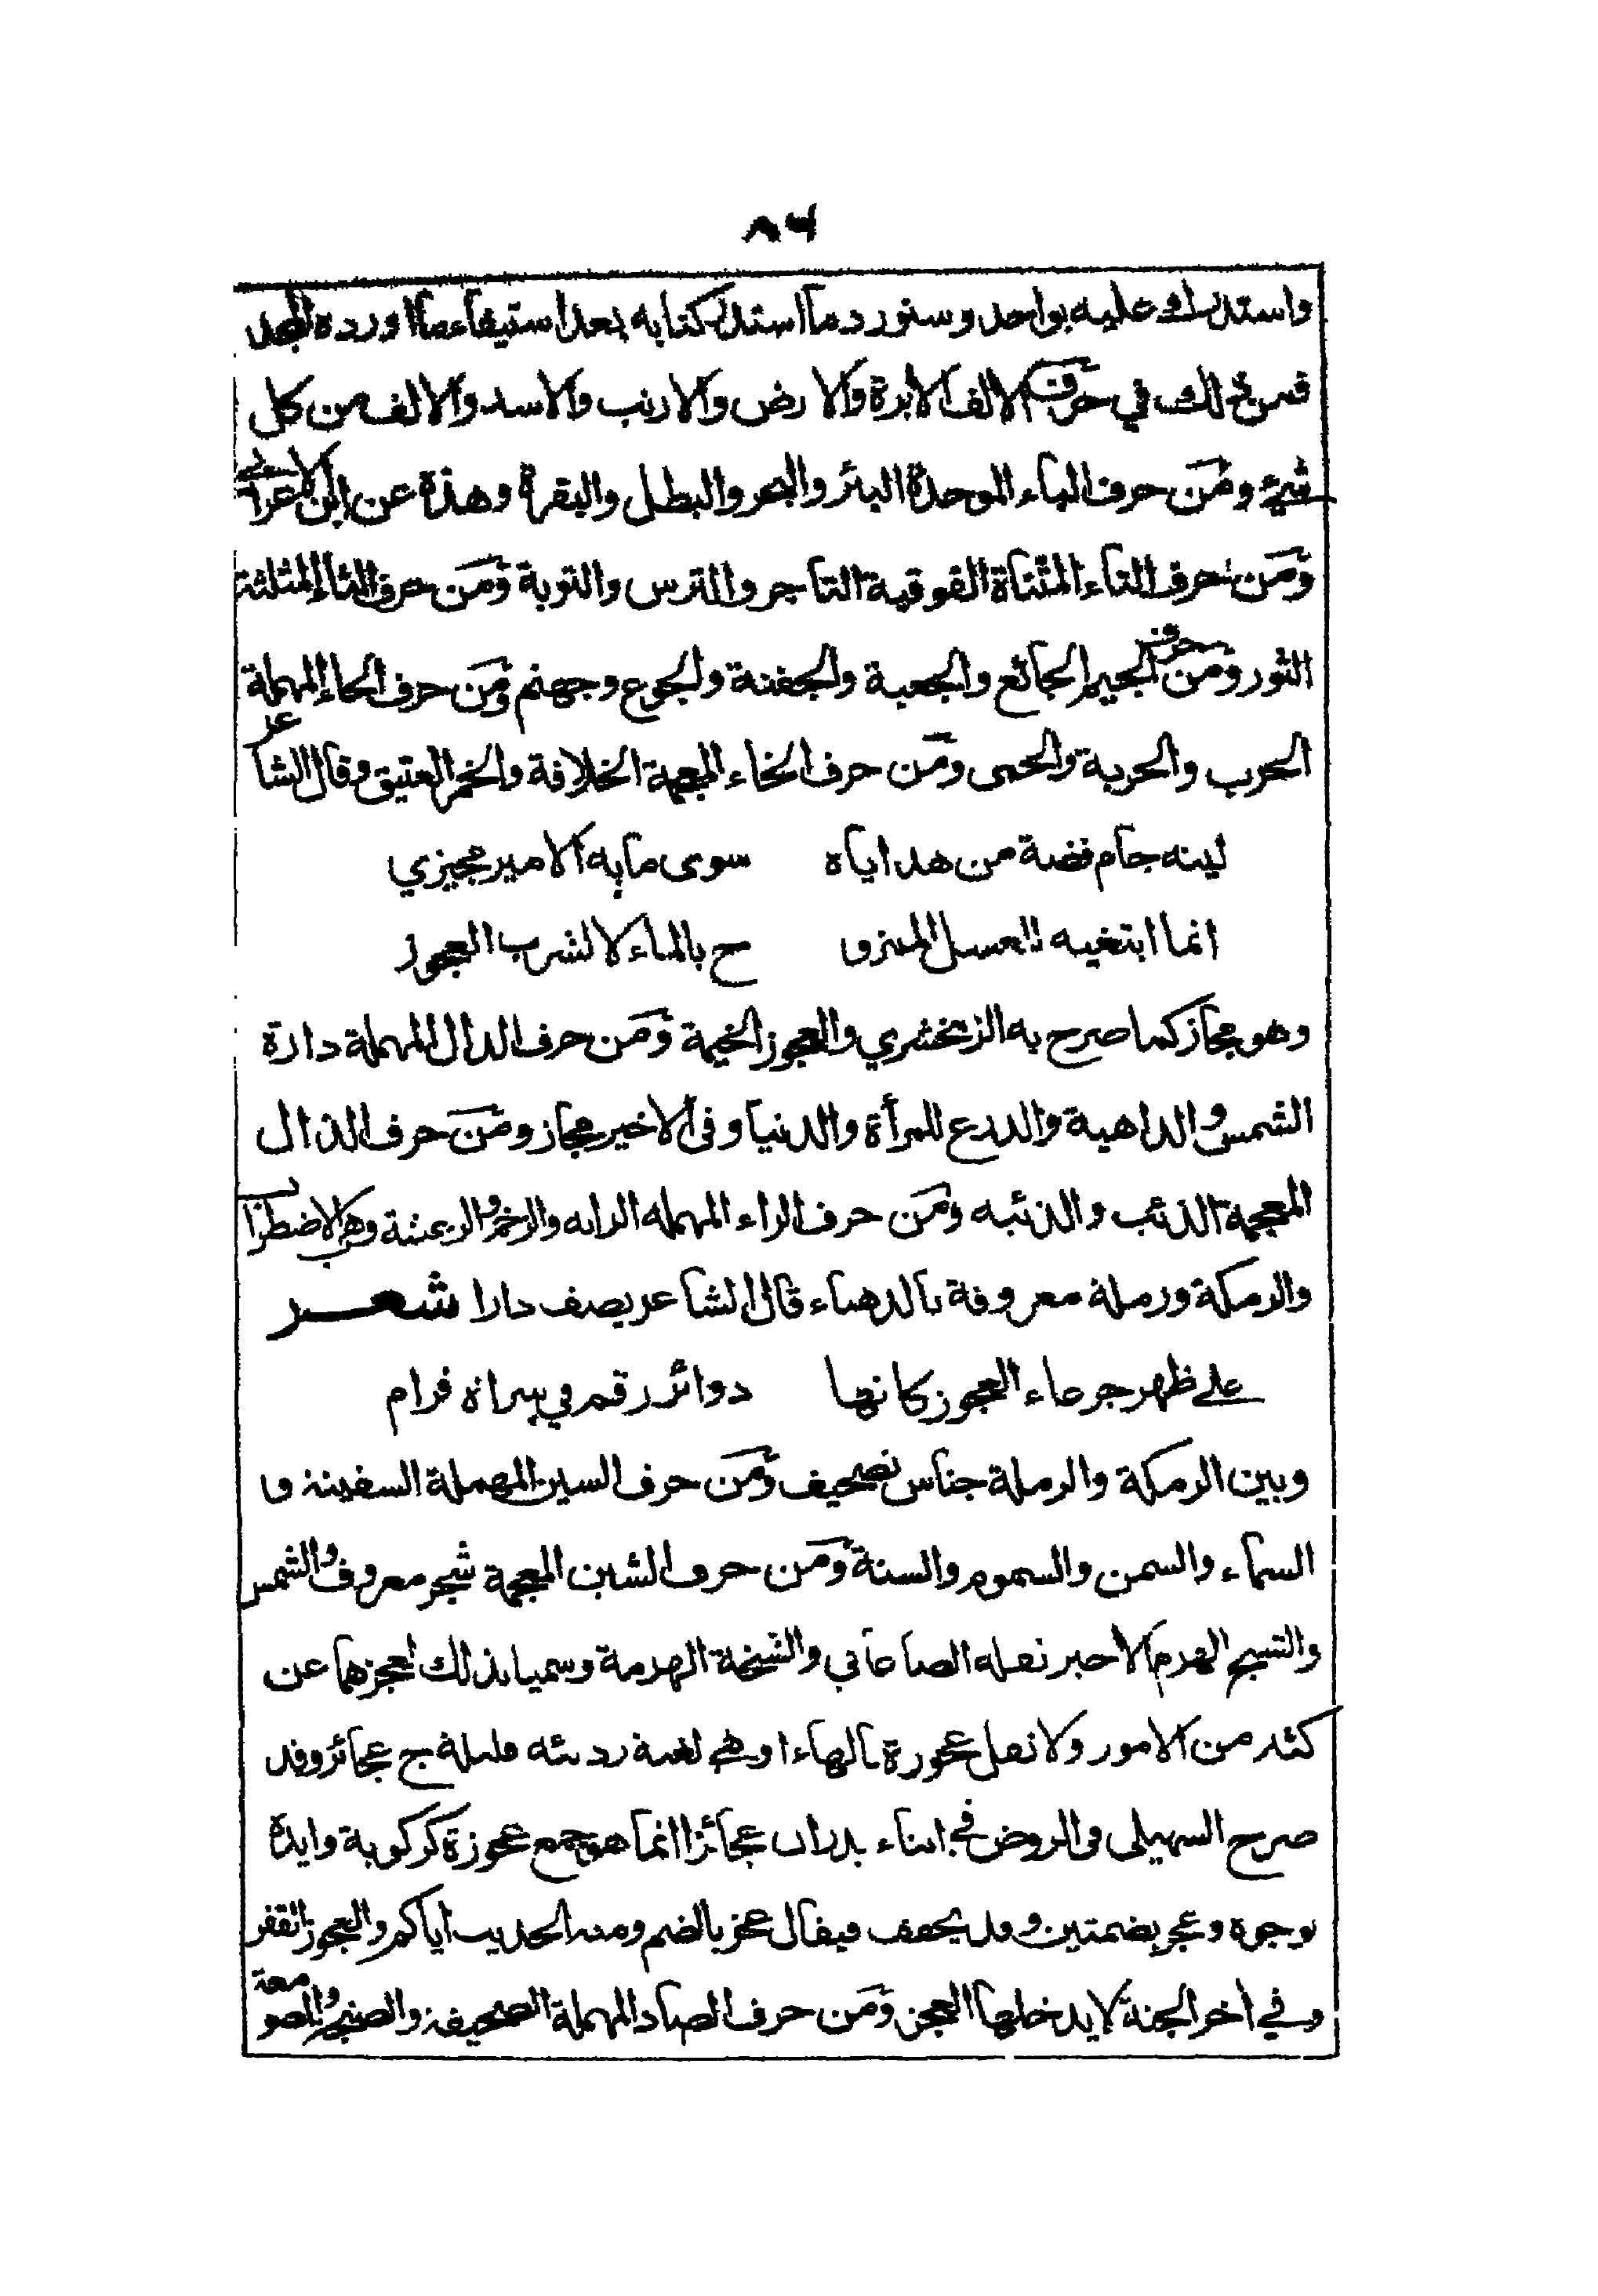 ٨٦
واستدرك عليه بواحد وسنورد ما استدركنا به بعد استيفاء ما اورده المجد
فمن ذلك في حرف الالف الابرة والارض والارنب والاسد والالف من كل
شيء ومن حرف الباء الموحدة البئر والبحر والبطل والبقرة وهذة عن ابن الاعرابي
ومن حرف التاء المثناة الفوقية التاجر والترس والتوبة ومن حرف الثاء المثلثة
الثور ومن حرف الجيم الجائع والجعبة والجفنة والجوع وجهنم ومن حرف الحاء المهملة
الحرب والحربة والحمى ومن حرف الخاء المعجمة الخلافة والخمر العتيق وقال الشاعر
ليته جام فضة من هداياه سوى ما به الامير مجيزي
انما ابتغيه للعسل الممزو ح بالماء لا لشرب العجوز
وهو مجاز كما صرح به الزمخشري والعجوز الخيمة ومن حرف الدال المهملة دارة
الشمس والداهية والدرع للمرأة والدنيا وفى الاخير مجاز ومن حرف الذال
المعجمة الذئب والذئبه ومن حرف الراء المهمله الرايه والرخم والرعشة وهي الاضطراب
والرمكة ورملة معروفة بالدهناء قال الشاعر يصف دارا شعر
على ظهر جرعاء العجوز كانها دوائر رقم في سراة قرام
وبين الرمكة والرملة جناس تصحيف ومن حرف السين المهملة السفينة و
السماء والسمن والسموم والسنة ومن حرف الشين المعجمة شجر معروف والشمس
والشيخ الهرم الاخير نقله الصاغاني والشيخة الهرمة وسميا بذلك لعجزهما عن
كثير من الامور ولا تقل عجوزة بالهاء او هي لغية رديئه قليلة ج عجائز وقد
صرح السهيلى فى الروض في اثناء بدر ان عجائز انما هو جمع عجوزة كركوبة وايده
بوجوه وعجز بضمتين وقد يخفف فيقال عجز بالضم ومنه الحديث اياكم والعجز العقر
وفي اخر الجنة لا يدخلها العجز ومن حرف الصاد المهملة الصحيفة والصنج والصومعة